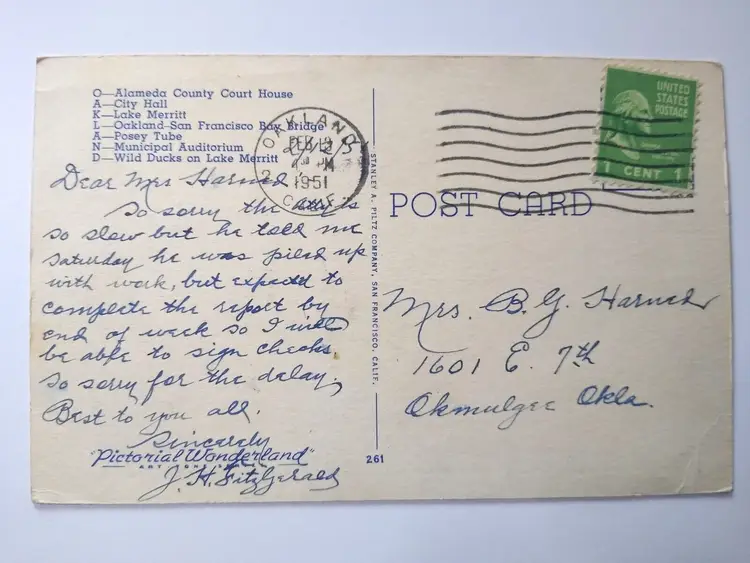 O—Alameda County Court House
A—City Hall
K—Lake Merritt
L—Oakland-San Francisco Bay Bridge
A—Posey Tube
N—Municipal Auditorium
D—Wild Ducks on Lake Merritt
OAKLAND
FEB 12
M
1951
CALIF.
2/12/5
UNITED
STATES
POSTAGE
1 CENT 1
Dear Mrs Harned
So sorry the atty is
so slow but he told me
Saturday he was piled up
with work, but expected to
complete the report by
end of week so I will
be able to sign checks.
So sorry for the delay,
Best to you all.
Sincerely
J. H. Fitzgerald
"Pictorial Wonderland"
STANLEY A. PILTZ COMPANY, SAN FRANCISCO, CALIF.
261
POST CARD
Mrs. B. G. Harned
1601 E. 7th
Okmulgee Okla.